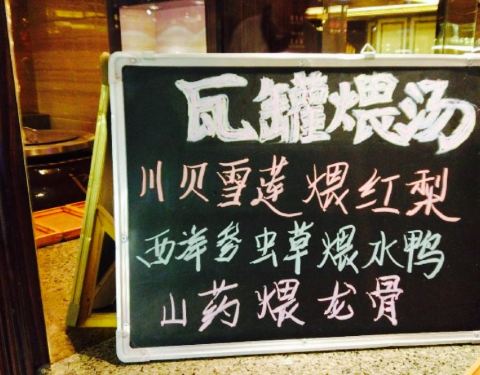 瓦罐煨汤
川贝雪莲煨红梨
西洋参虫草煨水鸭
山药煨龙骨